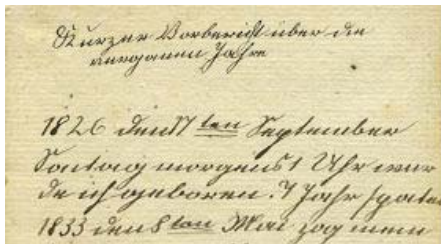 Kurzer Vorbericht über die
verganen Jahre
1826 den 17 ten September
Sontag morgens 1 Uhr wur
de ich geboren. 7 Jahr später
1833 den 8 ten Mai zog mein